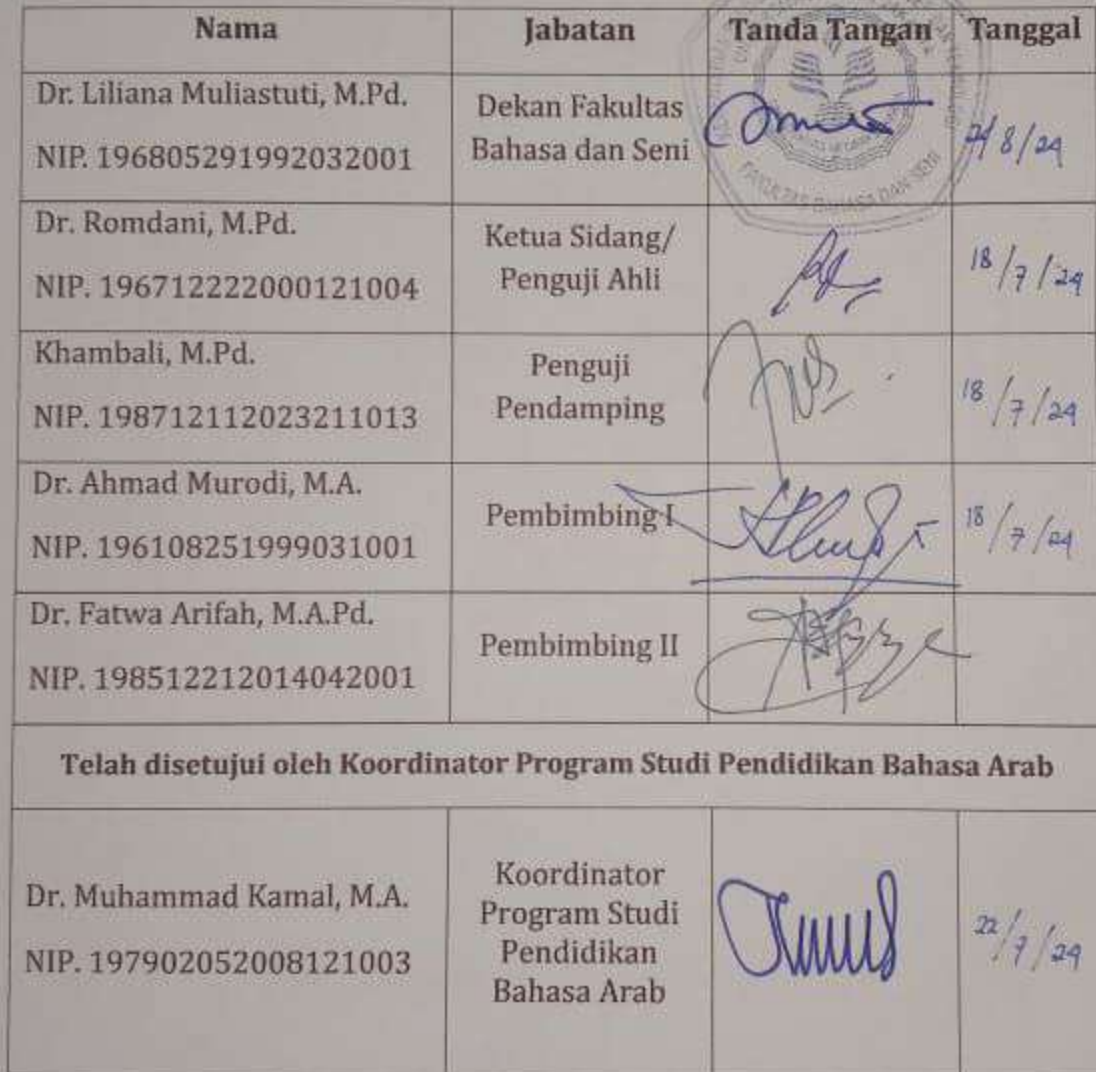 Nama Jabatan Tanda Tangan Tanggal
Dr. Liliana Muliastuti, M.Pd.
NIP. 196805291992032001
Dekan Fakultas
Bahasa dan Seni
/8/24
FAKULTAS BAHASA DAN SENI
Dr. Romdani, M.Pd.
NIP. 196712222000121004
Ketua Sidang/
Penguji Ahli
18/7/24
Khambali, M.Pd.
NIP. 198712112023211013
Penguji
Pendamping
18/7/24
Dr. Ahmad Murodi, M.A.
NIP. 196108251999031001
Pembimbing I
18/7/24
Dr. Fatwa Arifah, M.A.Pd.
NIP. 198512212014042001
Pembimbing II
Telah disetujui oleh Koordinator Program Studi Pendidikan Bahasa Arab
Dr. Muhammad Kamal, M.A.
NIP. 197902052008121003
Koordinator
Program Studi
Pendidikan
Bahasa Arab
22/7/24